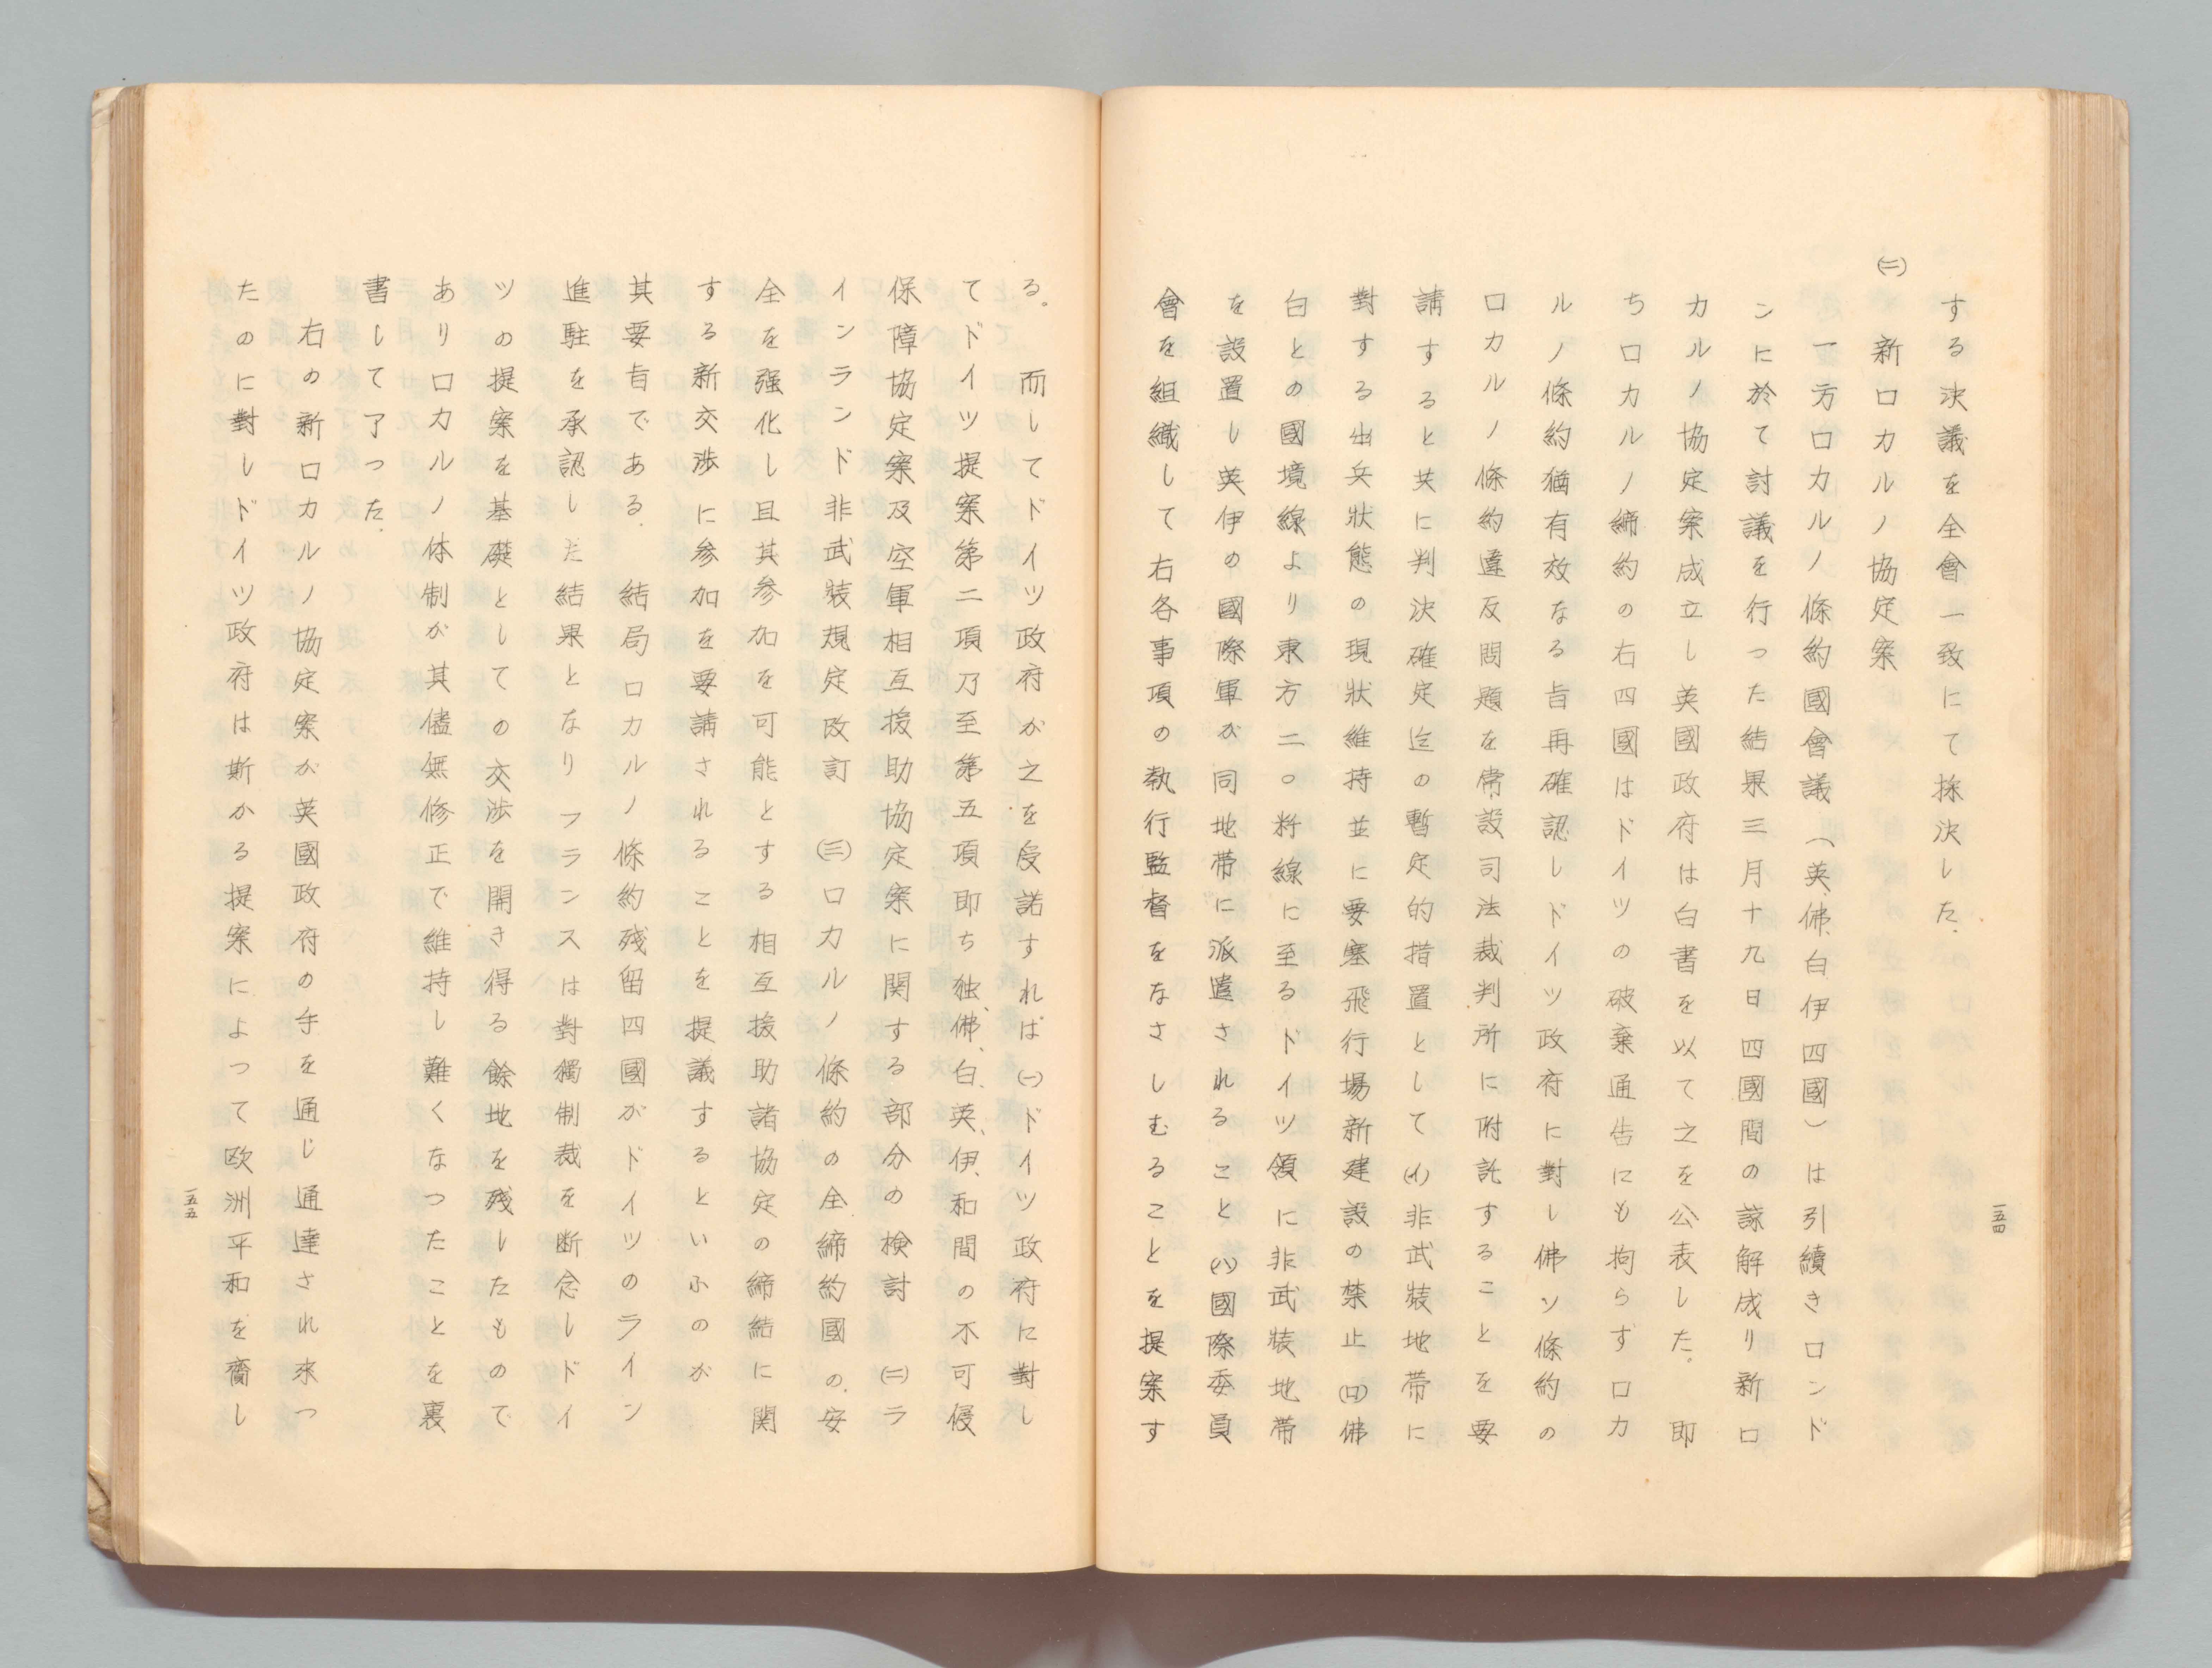 する決議を全會一致にて採決した.
㈡ 新ロカルノ協定案
一方ロカルノ條約國會議(英、佛、白、伊四國)は引續きロンド
ンに於て討議を行つた結果三月十九日四國間の諒解成り新ロ
カルノ協定案成立し英國政府は白書を以て之を公表した。 即
ちロカルノ締約の右四國はドイツの破棄通告にも拘らずロカ
ルノ條約猶有效なる旨再確認しドイツ政府に對し佛ソ條約の
ロカルノ條約違反問題を常設司法裁判所に附託することを要
請すると共に判決確定迄の暫定的措置として(イ)非武裝地帶に
對する出兵狀態の現狀維持並に要塞飛行場新建設の禁止(ロ)佛
白との國境線より東方二〇粁線に至るドイツ領に非武裝地帶
を設置し英伊の國際軍が同地帶に派遣されること(ハ)國際委員
會を組織して右各事項の執行監督をなさしむることを提案す
一五四
る。 而してドイツ政府が之を受諾すれば㈠ドイツ政府に對し
てドイツ提案第二項乃至第五項即ち独、佛、白、英、伊、和間の不可侵
保障協定案及空軍相互援助協定案に関する部分の検討 ㈡ラ
インランド非武裝規定改訂 ㈢ロカルノ條約の全締約國の安
全を强化し且其参加を可能とする相互援助諸協定の締結に関
する新交渉に参加を要請されることを提議するといふのが
其要旨である. 結局ロカルノ條約残留四國がドイツのライン
進駐を承認した結果となりフランスは對獨制裁を断念しドイ
ツの提案を基礎としての交渉を開き得る餘地を残したもので
ありロカルノ体制が其儘無修正で維持し難くなつたことを裏
書して了つた.
右の新ロカルノ協定案が英國政府の手を通じ通達され來つ
たのに對しドイツ政府は斯かる提案によつて欧洲平和を齎し
一五五